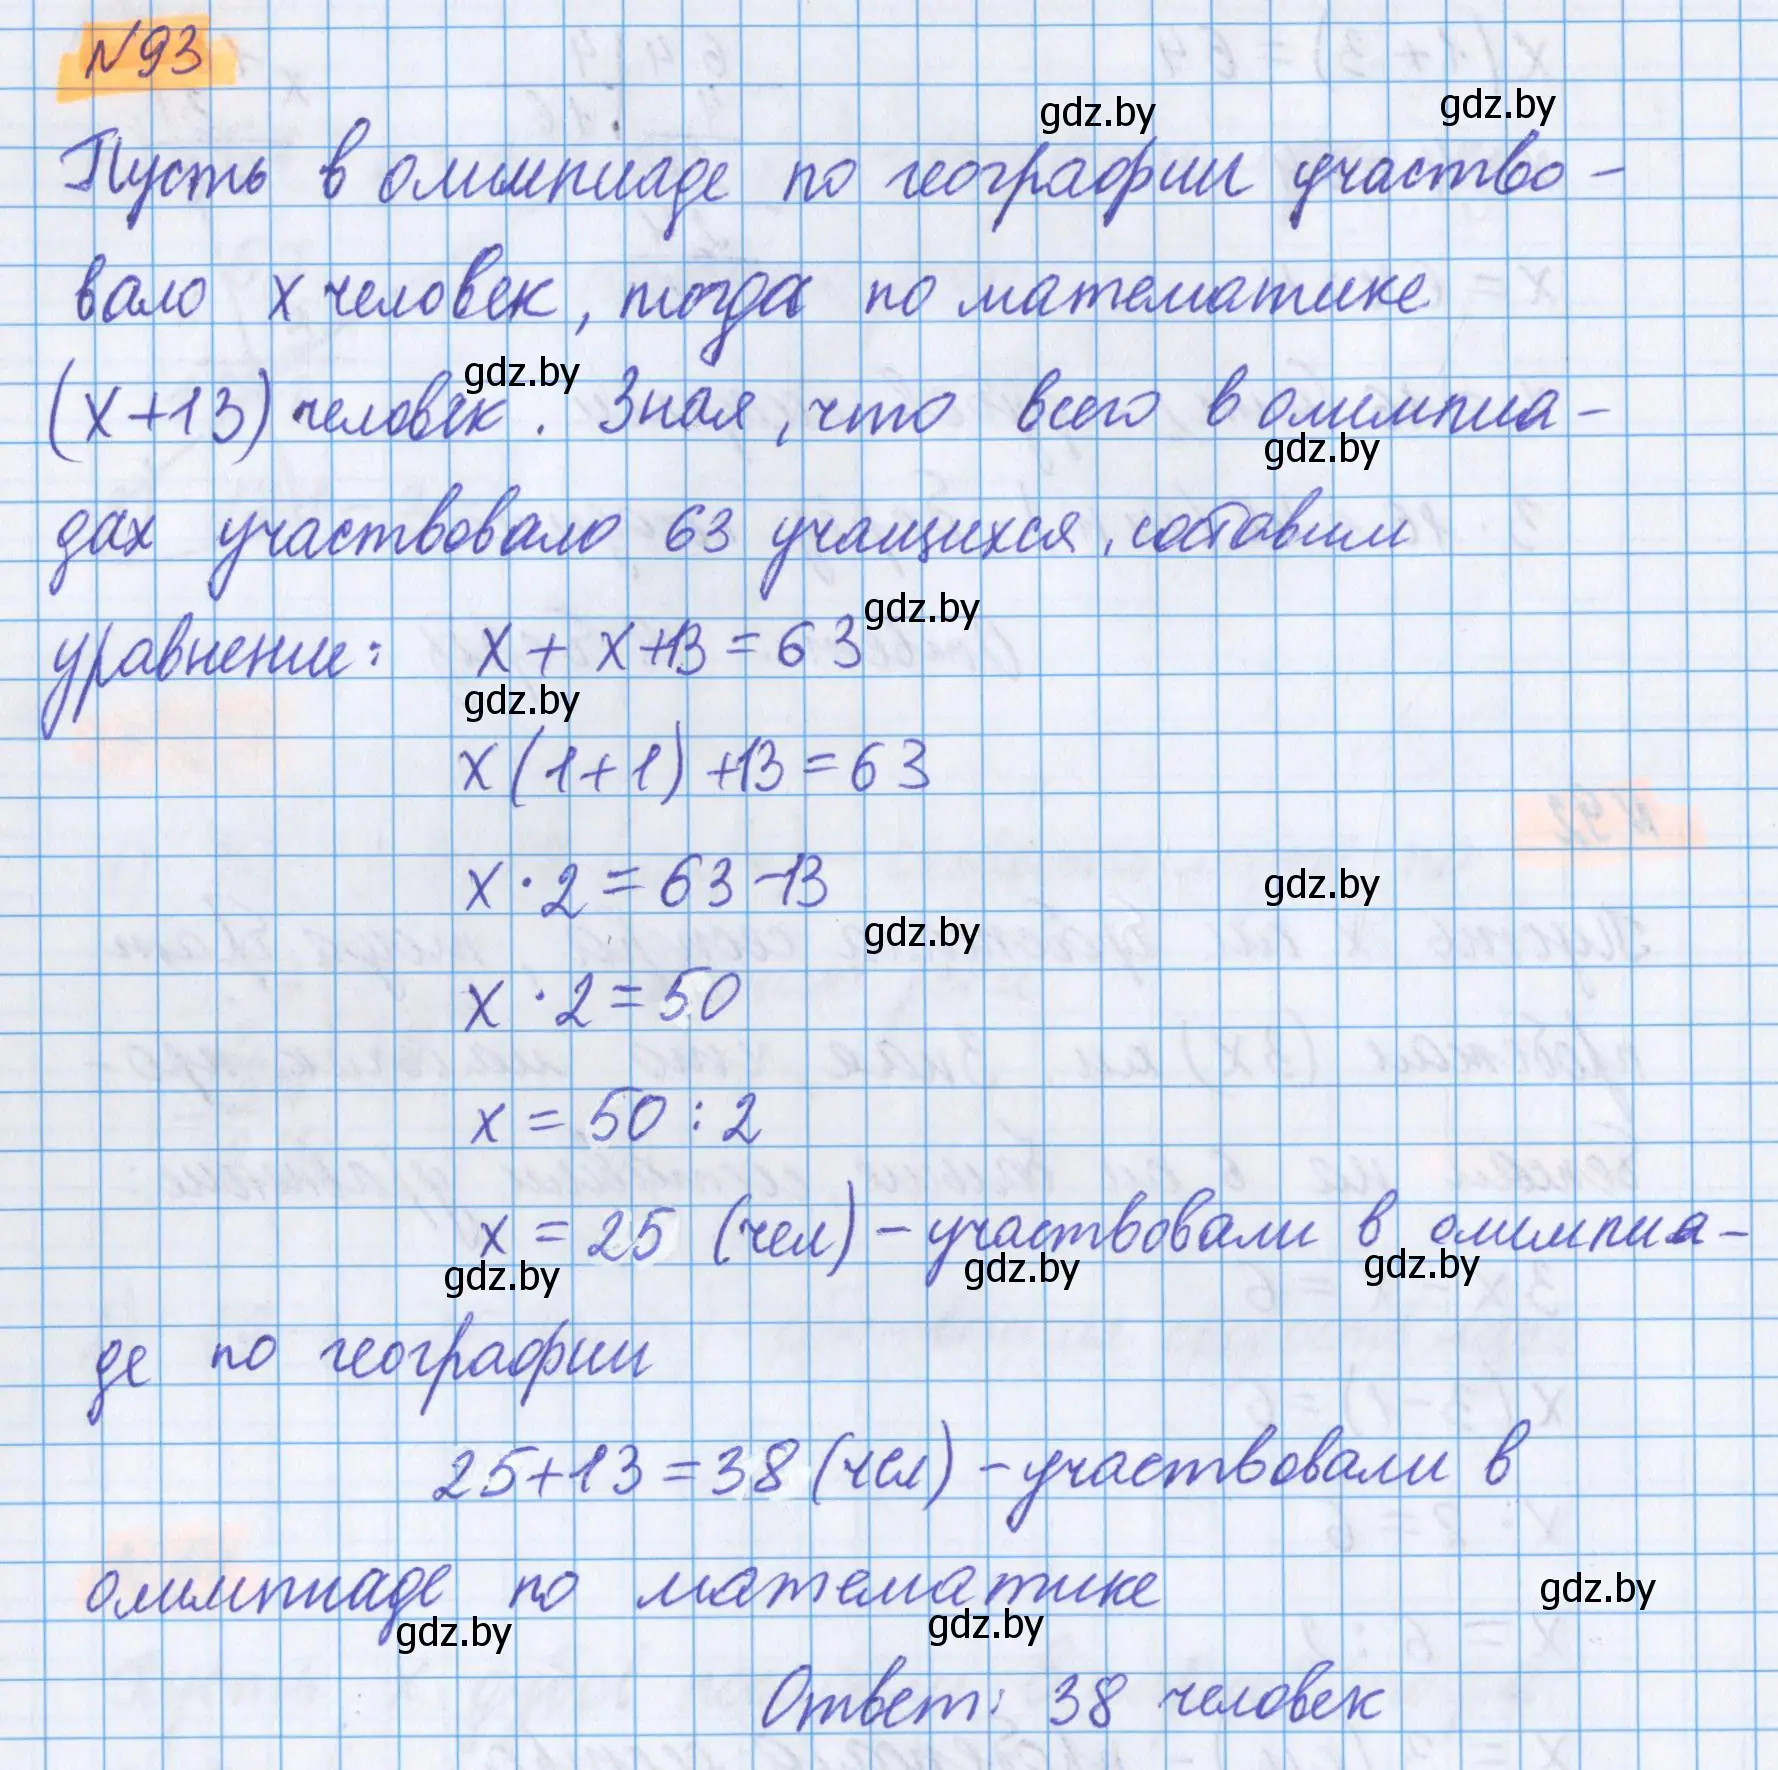 №93
gdz.by gdz.by
Пусть в олимпиаде по географии участво-
вало х человек, тогда по математике
gdz.by
(х+13) человек. Зная, что всего в олимпиа-
gdz.by
дах участвовало 63 учащихся, составим
gdz.by
уравнение: х + х+13 = 63
gdz.by
х(1+1)+13=63
х·2=63-13
gdz.by
gdz.by
х·2=50
х = 50:2
х = 25 (чел) - участвовали в олимпиа-
gdz.by gdz.by gdz.by
де по географии
25+13=38 (чел) - участвовали в
олимпиаде по математике
gdz.by
gdz.by gdz.by
Ответ: 38 человек